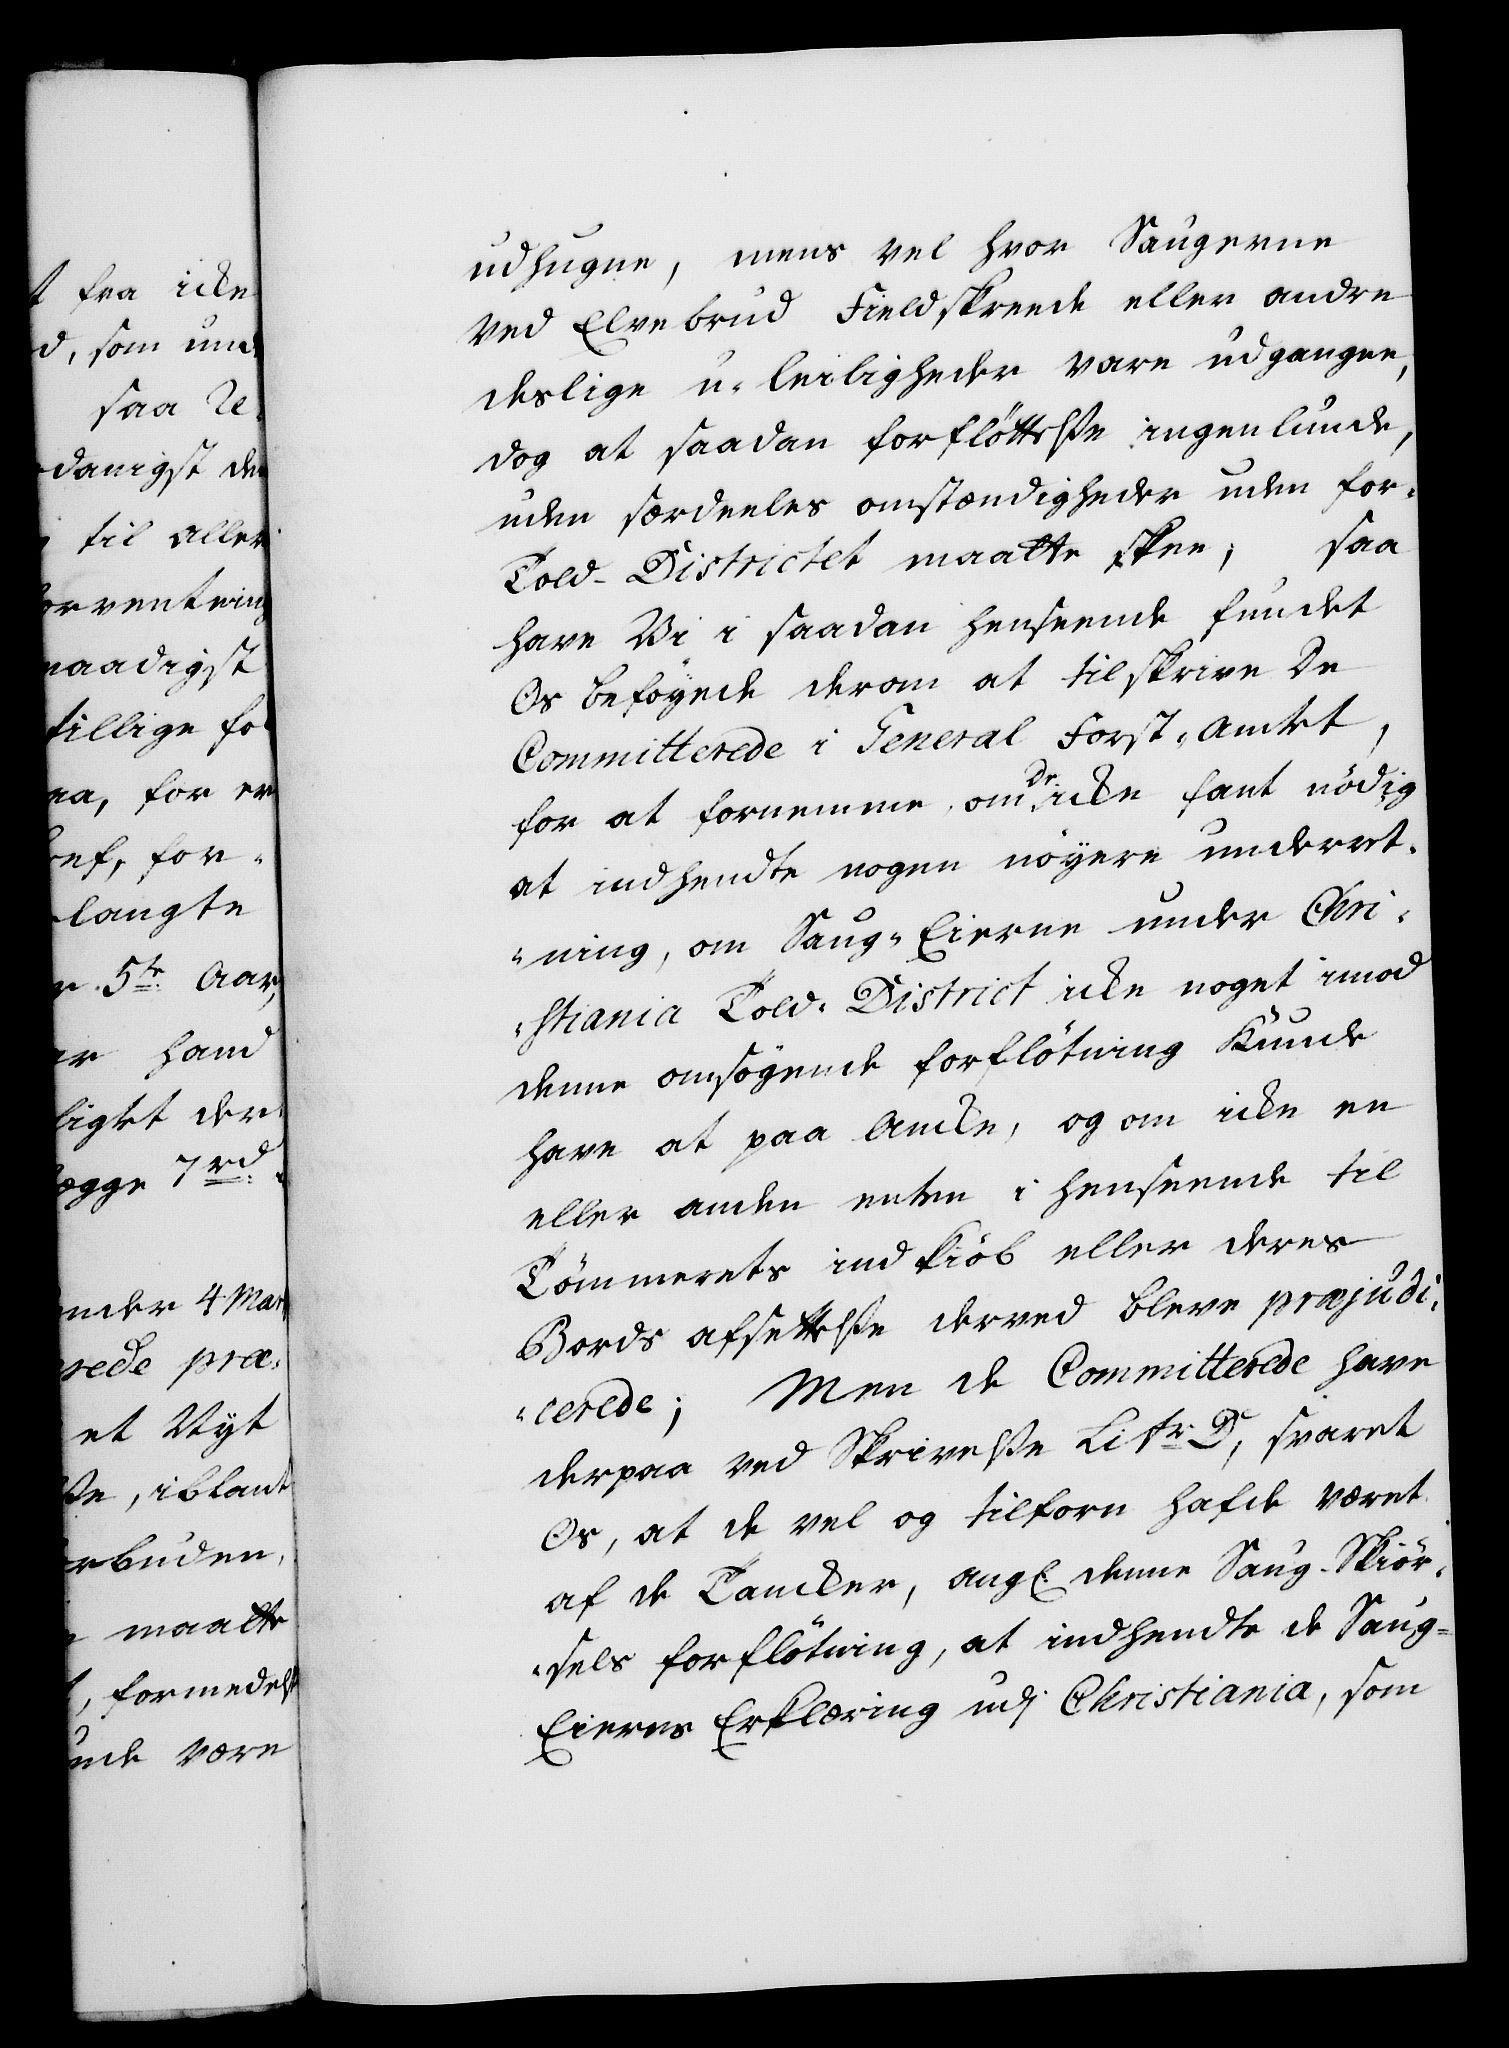 t fra icke
d, som und
saa Re-
danigst den
til aller
orventning
naadigst
tillige for
na, for er
ref, for-
langte
r 5te Aar,
er hand
ligt der
lægge 7 rd
nder 4 Mar
rede præ-
et Nyt
se, iblant
rbuden,
maatte
, formedelst
nde være
udhugne, mens vel hvor Saugerne
ved Elvebrud Fieldskreede eller andre
deslige u-leiligheder vare udgangne,
dog at saadan forflöttelse ingenlunde,
uden særdeeles omstændigheder uden for-
Told-Districtet maatte skee; saa
have Vi i saadan henseende fundet
Os beföyede derom at tilskrive De
Committerede i General Forst-Amtet,
for at fornemme, om De icke fant nödig
at indhendte nogen nöyere underret-
-ning, om Saug-Eierne under Chri-
-stiania Told-District icke noget imod
denne omsögende forflötning Kunde
have at paa Ancke, og om icke en
eller anden enten i henseende til
Tömmerets indkiöb eller deres
Bords afsettelse derved bleve præjudi-
-cerede; Men de Committerede have
derpaa ved Skrivelse Litr. D, svaret
Os, at de vel og tilforn hafde været
af de Tancker, angl. denne Saug-Skiör-
-sels forflötning, at indhendte de Saug-
Eieres Erklæring udj Christiania, som